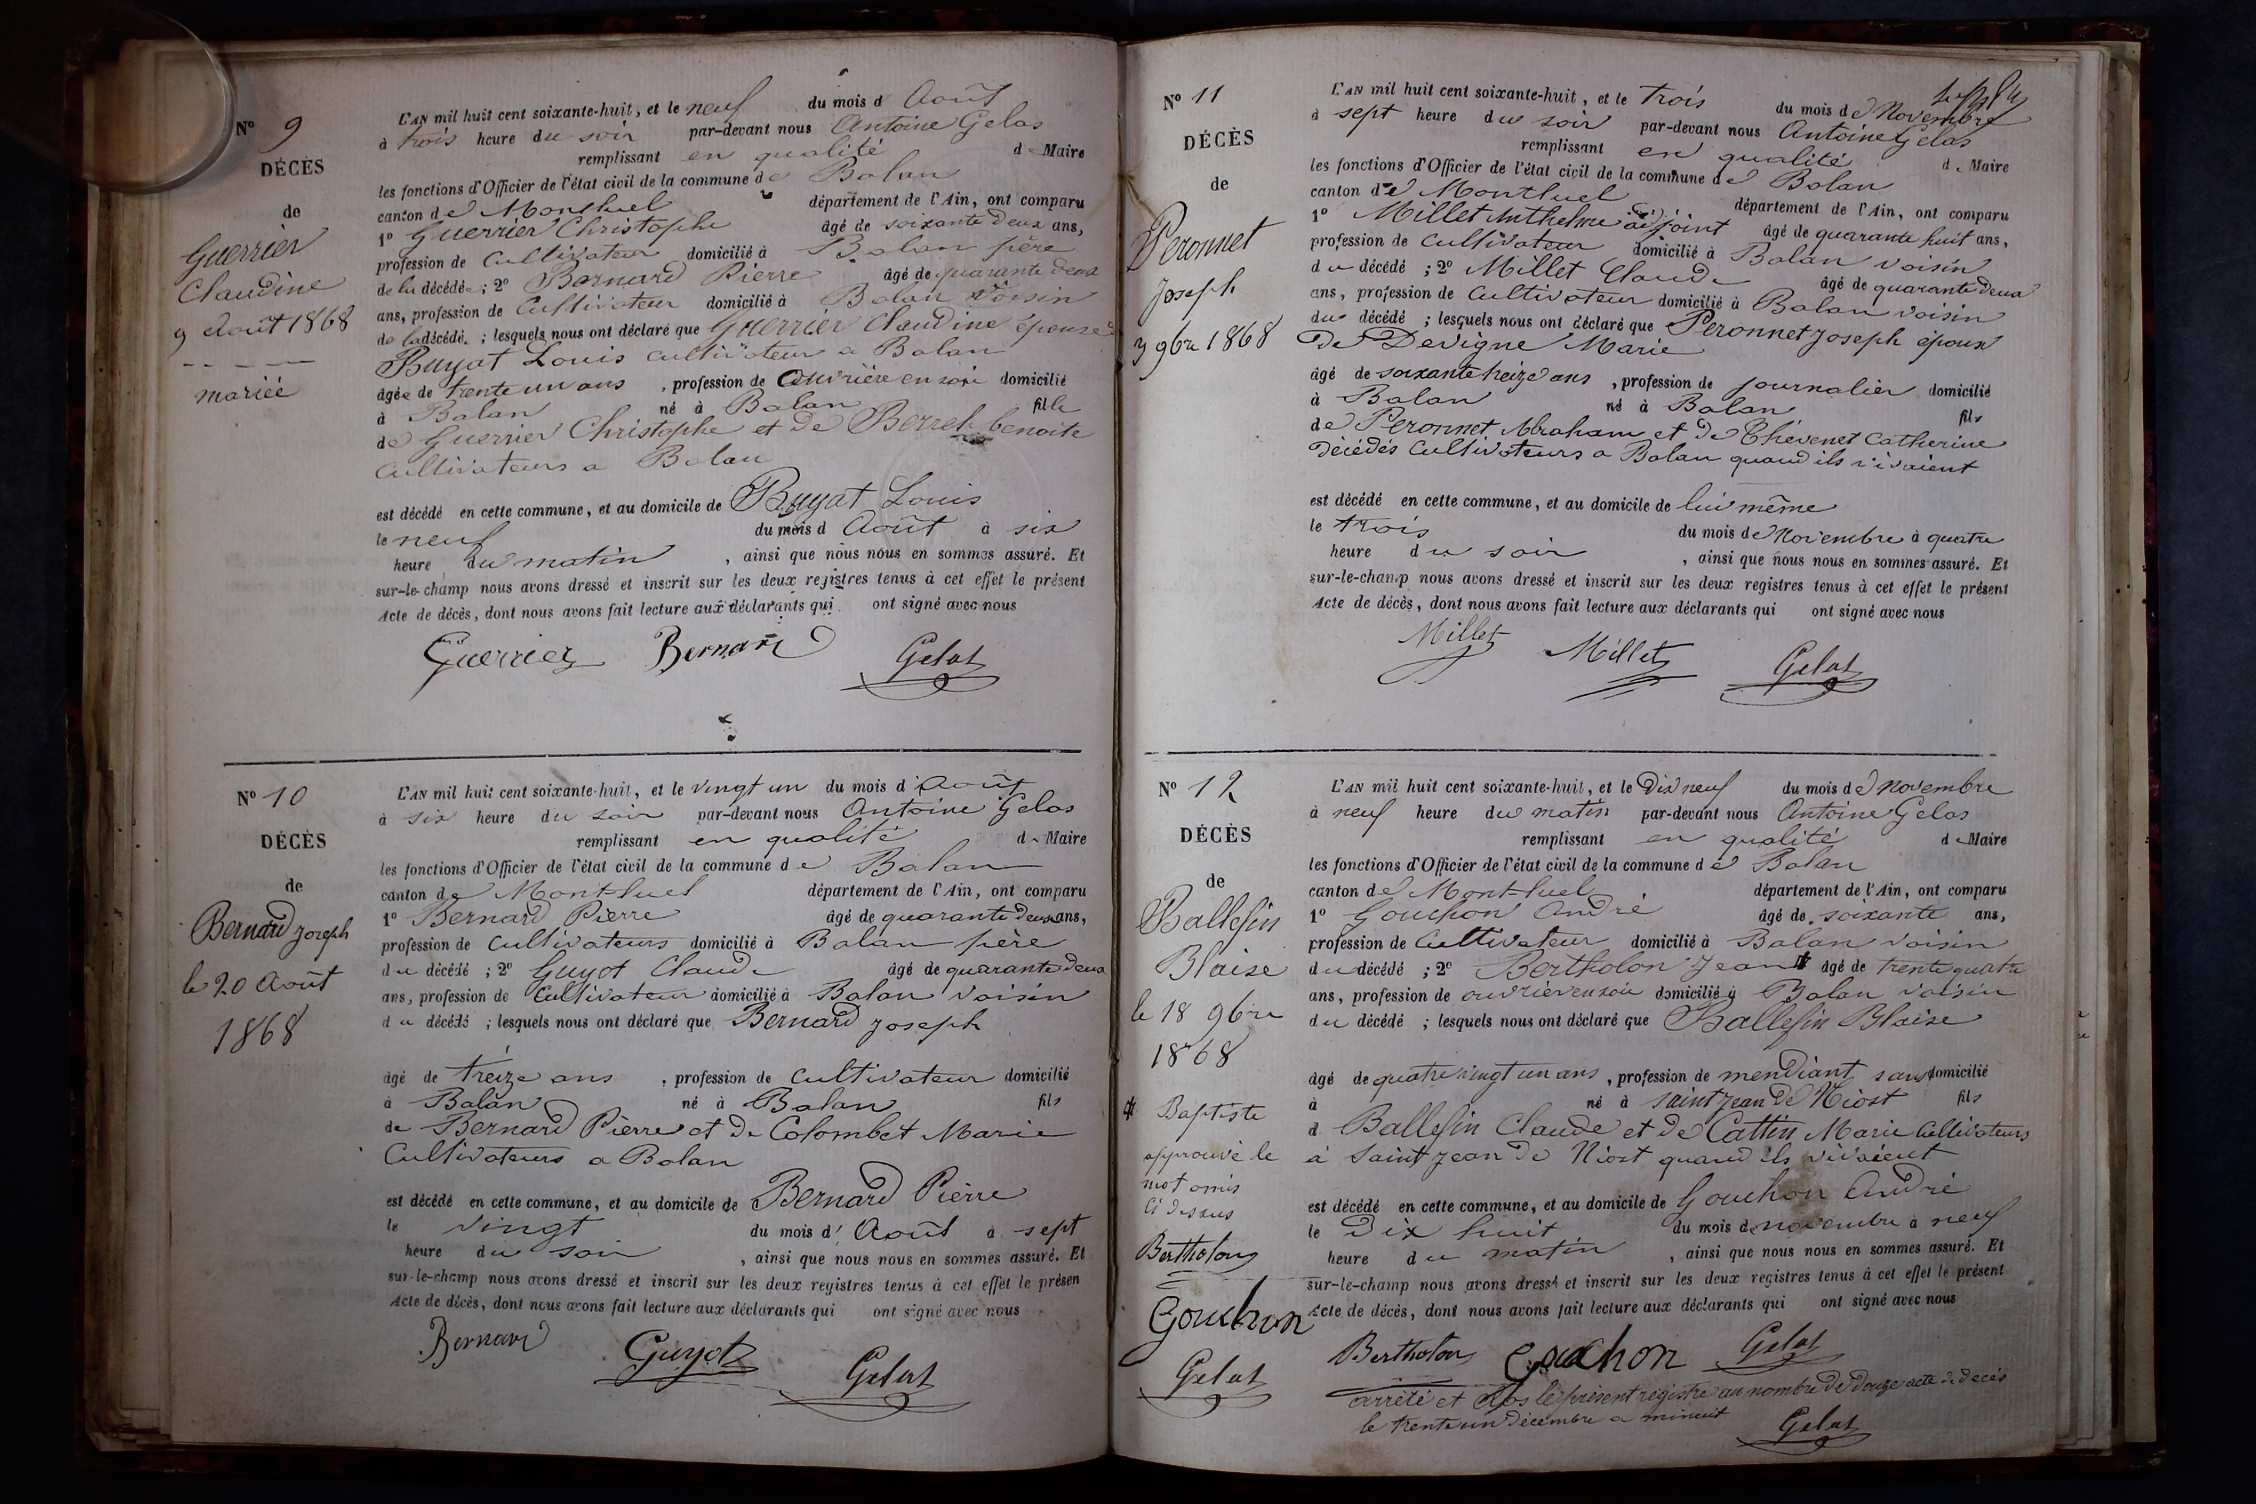 N° 9
DÉCÈS
de
Guerrier
Claudine
9 Août 1868
mariée
L'AN mil huit cent soixante-huit, et le neuf du mois d Août
à trois heure du soir par-devant nous Antoine Gelas
remplissant en qualité de Maire
les fonctions d'Officier de l'état civil de la commune de Balan
canton de Montluel département de l'Ain, ont comparu
1° Guerrier Christophe âgé de soixante deux ans,
profession de Cultivateur domicilié à Balan père
de la décédée ; 2° Bernard Pierre âgé de quarante deux
ans, profession de Cultivateur domicilié à Balan voisin
de la décédé. ; lesquels nous ont déclaré que Guerrier Claudine épouse de
Buyat Louis cultivateur a Balan
âgée de trente un ans , profession de Ouvrière en soie domicilié
à Balan né à Balan fille
de Guerrier Christophe et de benoite
Cultivateurs a Balan
est décédé en cette commune, et au domicile de Buyat Louis
le neuf du mois d Août à six
heure du matin , ainsi que nous nous en sommes assuré. Et
sur-le-champ nous avons dressé et inscrit sur les deux registres tenus à cet effet le présent
Acte de décès, dont nous avons fait lecture aux déclarants qui ont signé avec nous
Guerrier Bernard Gelas
N° 10
DÉCÈS
de
Bernard Joseph
le 20 Août
1868
L'AN mil huit cent soixante-huit, et le vingt un du mois d'Août
à six heure du soir par-devant nous Antoine Gelas
remplissant en qualité de Maire
les fonctions d'Officier de l'état civil de la commune de Balan
canton de Montluel département de l'Ain, ont comparu
1° Bernard Pierre âgé de quarante deux ans,
profession de Cultivateurs domicilié à Balan père
du décédé ; 2° Guyot Claude âgé de quarante deux
ans, profession de Cultivateur domicilié à Balan voisin
du décédé ; lesquels nous ont déclaré que Bernard Joseph
âgé de treize ans , profession de Cultivateur domicilié
à Balan né à Balan fils
de Bernard Pierre et de Colombet Marie
Cultivateurs a Balan
est décédé en cette commune, et au domicile de Bernard Pierre
le vingt du mois d' Août à sept
heure du soir , ainsi que nous nous en sommes assuré. Et
sur-le-champ nous avons dressé et inscrit sur les deux registres tenus à cet effet le présen
Acte de décès, dont nous avons fait lecture aux déclarants qui ont signé avec nous
Bernard Guyot Gelas
N° 11
DÉCÈS
de
Peronnet
Joseph
3 9bre 1868
L'AN mil huit cent soixante-huit, et le trois du mois de Novembre
à sept heure du soir par-devant nous Antoine Gelas
remplissant en qualité de Maire
les fonctions d'Officier de l'état civil de la commune de Balan
canton de Montluel département de l'Ain, ont comparu
1° Millet Anthelme adjoint âgé de quarante huit ans,
profession de Cultivateur domicilié à Balan voisin
du décédé ; 2° Millet Claude âgé de quarante deux
ans, profession de Cultivateur domicilié à Balan voisin
du décédé ; lesquels nous ont déclaré que Peronnet Joseph époux
De Devigne Marie
âgé de soixante treize ans , profession de journalier domicilié
à Balan né à Balan fils
de Peronnet Abraham et de Thévenet Catherine
Décédés Cultivateurs a Balan quand ils vivaient
est décédé en cette commune, et au domicile de lui même
le trois du mois de Novembre à quatre
heure du soir , ainsi que nous nous en sommes assuré. Et
sur-le-champ nous avons dressé et inscrit sur les deux registres tenus à cet effet le présent
Acte de décès, dont nous avons fait lecture aux déclarants qui ont signé avec nous
Millet Millet Gelas
N° 12
DÉCÈS
de
Ballefin
Blaise
le 18 9bre
1868
# Baptiste
approuvé le
mot omis
Ci dessus
Bertholon
Gouchon
Gelas
L'AN mil huit cent soixante-huit, et le Dix neuf du mois de Novembre
à neuf heure du matin par-devant nous Antoine Gelas
remplissant en qualité de Maire
les fonctions d'Officier de l'état civil de la commune de Balan
canton de Montluel département de l'Ain, ont comparu
1° Gouchon André âgé de soixante ans,
profession de Cultivateur domicilié à Balan voisin
du décédé ; 2° Bertholon Jean # âgé de trente quatre
ans, profession de ouvrier en soie domicilié à Balan voisin
du décédé ; lesquels nous ont déclaré que Ballefin Blaise
âgé de quatre vingt un ans , profession de mendiant sans domicilié
à né à Saint Jean de Niost fils
d Ballefin Claude et de Cattin Marie Cultivateurs
a Saint Jean de Niost quand ils vivaient
est décédé en cette commune, et au domicile de Gouchon André
le Dix huit du mois de novembre à neuf
heure du matin , ainsi que nous nous en sommes assuré. Et
sur-le-champ nous avons dressé et inscrit sur les deux registres tenus à cet effet le présent
Acte de décès, dont nous avons fait lecture aux déclarants qui ont signé avec nous
Bertholon Gouchon Gelas
arrêté et clos le présent registre au nombre de Douze acte de décès
le trente un Décembre a minuit Gelas